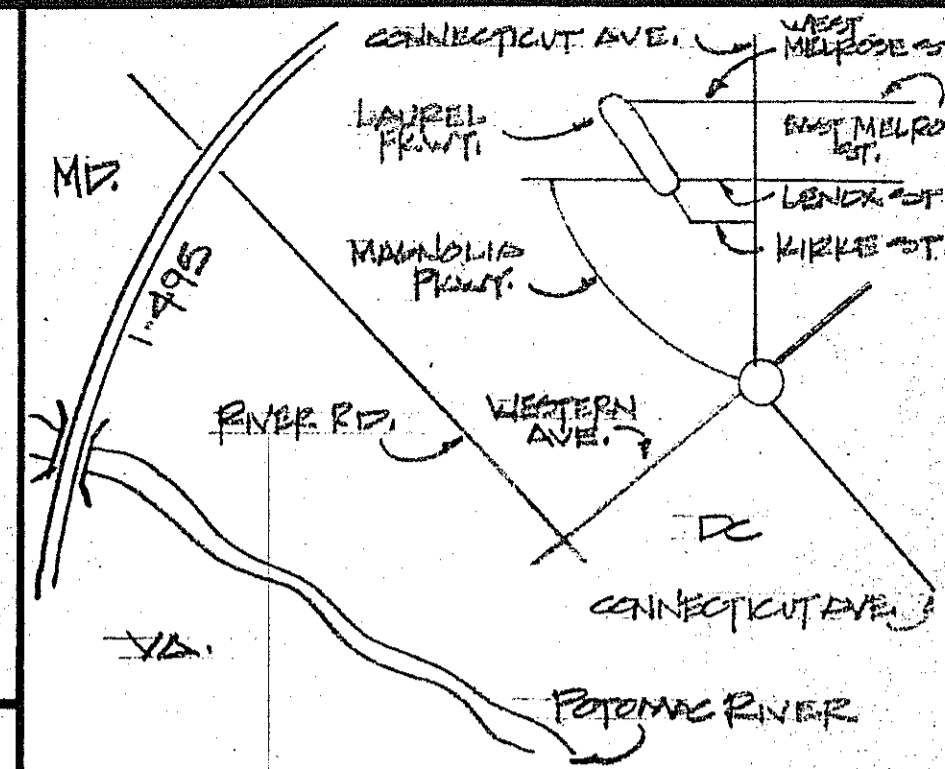 CONNECTICUT AVE.
WEST
MELROSE ST
LAUREL
PKWY.
EAST MELRO
ST.
MD.
LENOX ST
KIRKE ST.
MAGNOLIA
PKWY.
I-495
RIVER RD.
WESTERN
AVE.
DC
CONNECTICUT AVE.
VA.
POTOMAC RIVER